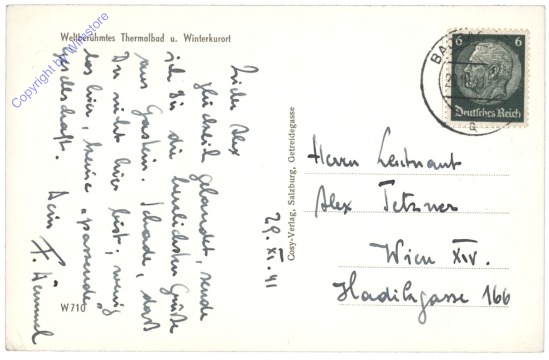 Weltberühmtes Thermalbad u. Winterkurort
Copyright by Wifestore
Lieber Alex
glücklich gelandet, sende
ich Dir die herzlichsten Grüße
aus Gastein. Schade, daß
Du nicht hier bist, wenig
los hier, keine "passende"
Gesellschaft.
Dein F. Hämmel
29. XI. 41
W710
Cosy-Verlag, Salzburg, Getreidegasse
6 6
Deutsches Reich
BAD
a
Herrn Leutnant
Alex Tetzner
Wien XIV.
Hadikgasse 166